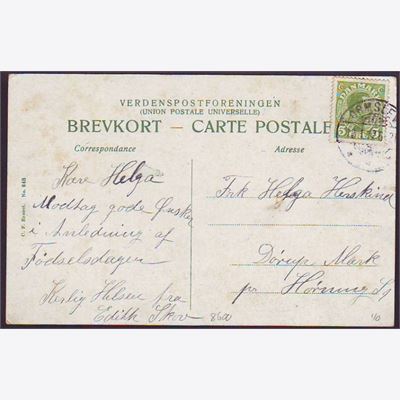 VERDENSPOSTFORENINGEN
(UNION POSTALE UNIVERSELLE)
BREVKORT — CARTE POSTALE
Correspondance
Adresse
DANMARK
5
Kære Helga
Modtag gode Ønsker
i Anledning af
Fødselsdagen
Kærlig Hilsen fra
Edith Skov
Frk Helga Herskind
Dørup Mark
pr Hørning St
8600